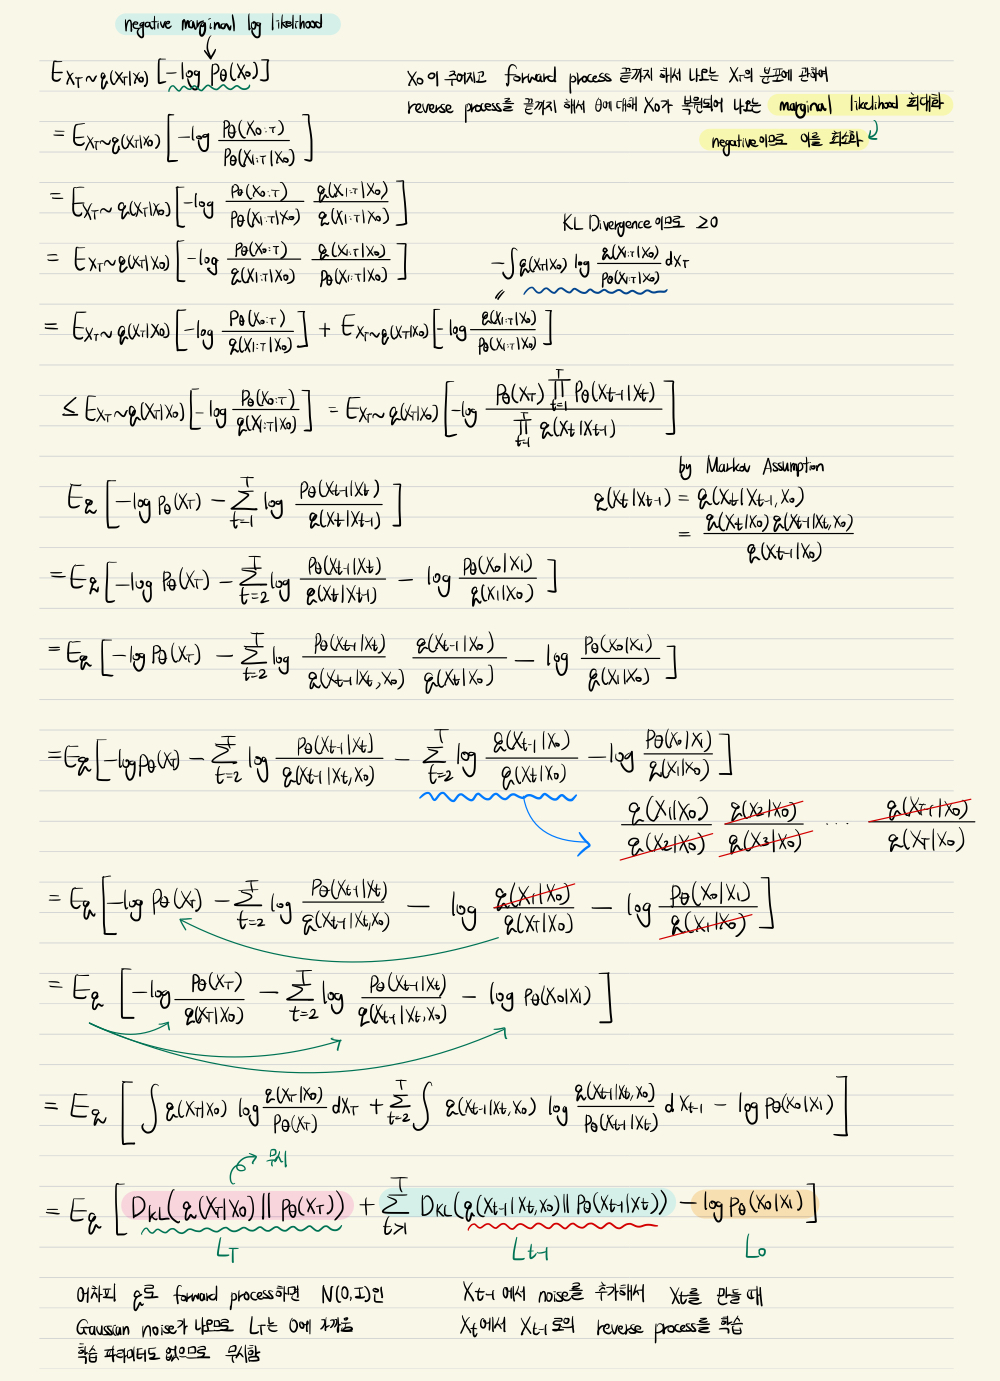 negative marginal log likelihood
E_{X_T∼q(X_T|X_0)} [-log Pθ(X_0)]
X_0이 주어지고 forward process 끝까지 해서 나오는 X_T의 분포에 관하여
reverse process를 끝까지 해서 θ에 대해 X_0가 복원되어 나오는 marginal likelihood 최대화
negative이므로 이를 최소화
= E_{X_T∼q(X_T|X_0)} [-log Pθ(X_{0:T}) / Pθ(X_{1:T}|X_0)]
= E_{X_T∼q(X_T|X_0)} [-log Pθ(X_{0:T}) / Pθ(X_{1:T}|X_0) q(X_{1:T}|X_0) / q(X_{1:T}|X_0)]
KL Divergence이므로 ≥0
= E_{X_T∼q(X_T|X_0)} [-log Pθ(X_{0:T}) / q(X_{1:T}|X_0) q(X_{1:T}|X_0) / Pθ(X_{1:T}|X_0)]
-∫ q(X_T|X_0) log q(X_{1:T}|X_0) / Pθ(X_{1:T}|X_0) dX_T
= E_{X_T∼q(X_T|X_0)} [-log Pθ(X_{0:T}) / q(X_{1:T}|X_0)] + E_{X_T∼q(X_T|X_0)} [-log q(X_{1:T}|X_0) / Pθ(X_{1:T}|X_0)]
≤ E_{X_T∼q(X_T|X_0)} [-log Pθ(X_{0:T}) / q(X_{1:T}|X_0)] = E_{X_T∼q(X_T|X_0)} [-log Pθ(X_T) ∏_{t=1}^T Pθ(X_{t-1}|X_t) / ∏_{t=1}^T q(X_t|X_{t-1})]
by Markov Assumption
E_q [-log Pθ(X_T) - ∑_{t=1}^T log Pθ(X_{t-1}|X_t) / q(X_t|X_{t-1})]
q(X_t|X_{t-1}) = q(X_t|X_{t-1}, X_0)
= q(X_t|X_0) q(X_{t-1}|X_t, X_0) / q(X_{t-1}|X_0)
= E_q [-log Pθ(X_T) - ∑_{t=2}^T log Pθ(X_{t-1}|X_t) / q(X_t|X_{t-1}) - log Pθ(X_0|X_1) / q(X_1|X_0)]
= E_q [-log Pθ(X_T) - ∑_{t=2}^T log Pθ(X_{t-1}|X_t) / q(X_{t-1}|X_t, X_0) q(X_{t-1}|X_0) / q(X_t|X_0) - log Pθ(X_0|X_1) / q(X_1|X_0)]
= E_q [-log Pθ(X_T) - ∑_{t=2}^T log Pθ(X_{t-1}|X_t) / q(X_{t-1}|X_t, X_0) - ∑_{t=2}^T log q(X_{t-1}|X_0) / q(X_t|X_0) - log Pθ(X_0|X_1) / q(X_1|X_0)]
q(X_1|X_0) / q(X_2|X_0) q(X_2|X_0) / q(X_3|X_0) ... q(X_{T-1}|X_0) / q(X_T|X_0)
= E_q [-log Pθ(X_T) - ∑_{t=2}^T log Pθ(X_{t-1}|X_t) / q(X_{t-1}|X_t, X_0) - log q(X_1|X_0) / q(X_T|X_0) - log Pθ(X_0|X_1) / q(X_1|X_0)]
= E_q [-log Pθ(X_T) / q(X_T|X_0) - ∑_{t=2}^T log Pθ(X_{t-1}|X_t) / q(X_{t-1}|X_t, X_0) - log Pθ(X_0|X_1)]
= E_q [∫ q(X_T|X_0) log q(X_T|X_0) / Pθ(X_T) dX_T + ∑_{t=2}^T ∫ q(X_{t-1}|X_t, X_0) log q(X_{t-1}|X_t, X_0) / Pθ(X_{t-1}|X_t) dX_{t-1} - log Pθ(X_0|X_1)]
무시
= E_q [D_{KL}(q(X_T|X_0) || Pθ(X_T)) + ∑_{t>1}^T D_{KL}(q(X_{t-1}|X_t, X_0) || Pθ(X_{t-1}|X_t)) - log Pθ(X_0|X_1)]
L_T L_{t-1} L_0
어차피 q로 forward process하면 N(0,I)인
Gaussian noise가 나오므로 L_T는 0에 가까움
학습 파라미터도 없으므로 무시함
X_{t-1}에서 noise를 추가해서 X_t를 만들 때
X_t에서 X_{t-1}로의 reverse process를 학습